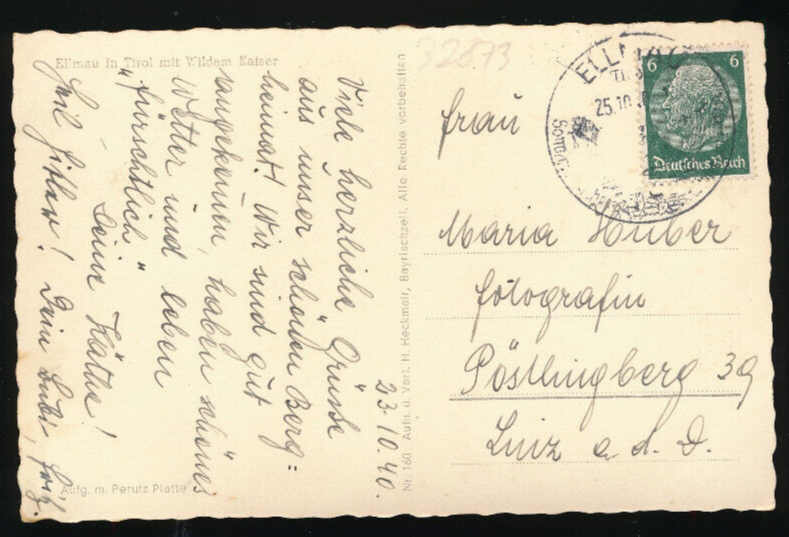 Ellmau in Tirol mit Wildem Kaiser
32873
23.10.40.
Viele herzliche Grüße
aus unser schönen Berg=
heimat! Wir sind gut
angekommen, haben schönes
Wetter und leben
"fürschtlich"
– Deine Käthe!
Heil Hitler! Dein Fritz.
Aufg. m. Perutz Platte
Nr. 160 Aufn. u. Verl. H. Heckmair, Bayrischzell. Alle Rechte vorbehalten
ELLMAU
25.10
6 6
Deutsches Reich
Frau
Maria Huber
Fotografin
Pöstlingberg 39
Linz a. d. D.